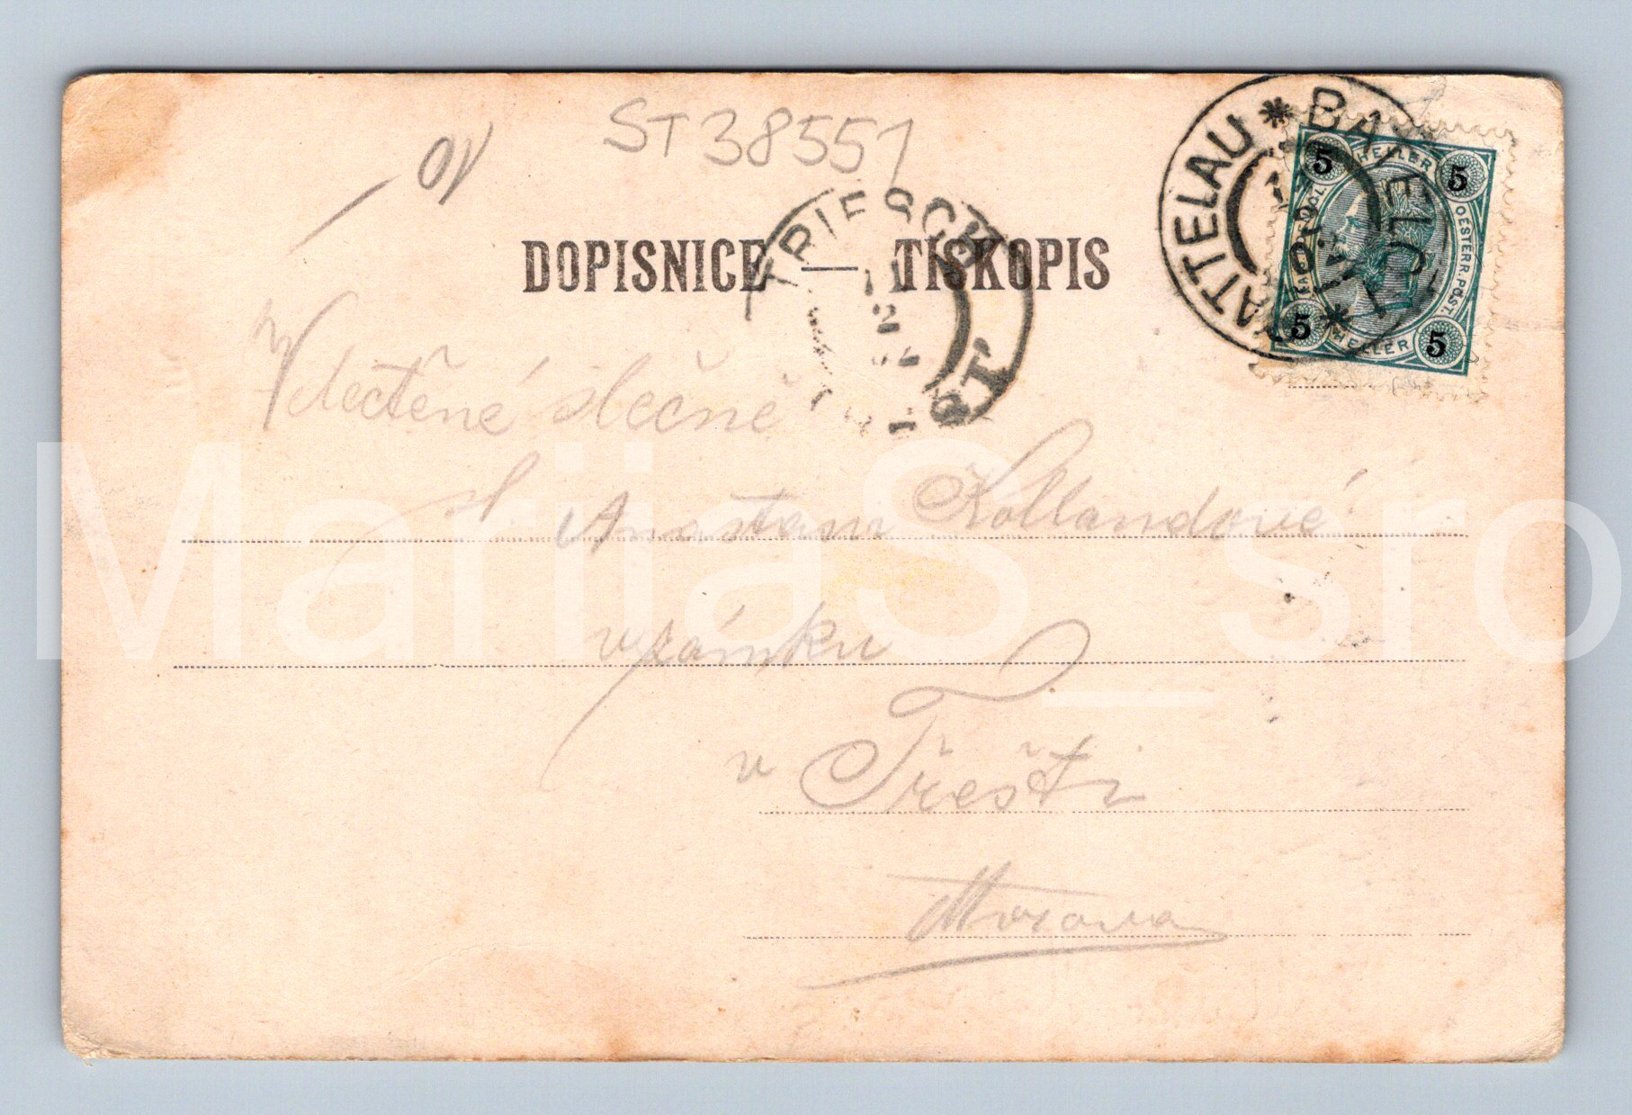 ST 38551
DOPISNICE — TISKOPIS
TRIESCH
11
2
KATTELAU * BATELOV *
5 HELLER 5
OESTERR. POST.
5 HELLER 5
Velectěné slečně
sl. Anastasii Hollandové
v zámku
v Třešti
Morava
MarijaS_sro